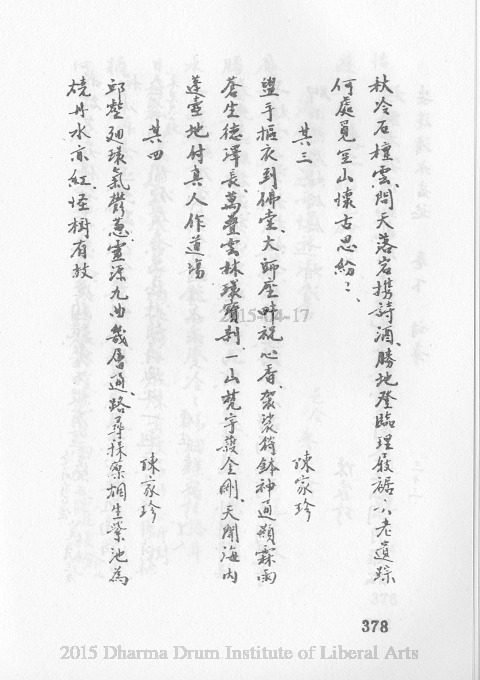 秋冷石檀雲問天落宕携詩酒、勝地登臨理屐裾、八老遺踪
何處覓、空山懷古思紛〻、
其三 陳家珍
盥手摳衣到佛堂、大師座畔祝心香、袈裟符鉢神通顯、霖雨
蒼生德澤長、萬疊雲林環寶剎、一山梵宇護金剛、天開海內
蓬壺地、付真人作道場
其四 陳家珍
邱壑廻環氣鬱蔥、靈源九曲幾層通、路尋採藥烟生紫、池為
燒丹水亦紅、怪樹有枝
378
2015-04-17
2015 Dharma Drum Institute of Liberal Arts